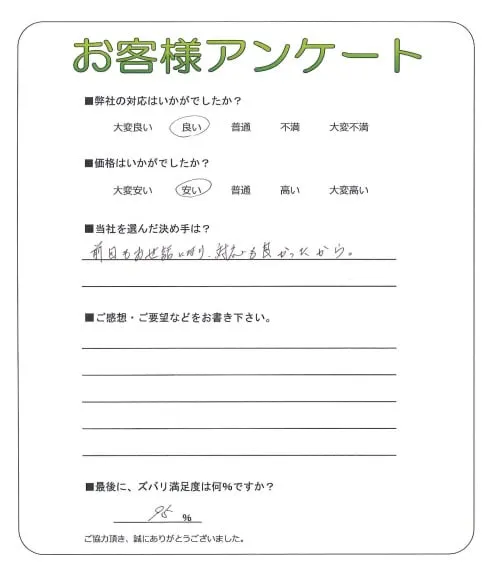 お客様アンケート
■弊社の対応はいかがでしたか?
大変良い 良い 普通 不満 大変不満
■価格はいかがでしたか?
大変安い 安い 普通 高い 大変高い
■当社を選んだ決め手は?
前回もお世話になり、対応も良かったから。
■ご感想・ご要望などをお書き下さい。
■最後に、ズバリ満足度は何%ですか?
95 %
ご協力頂き、誠にありがとうございました。